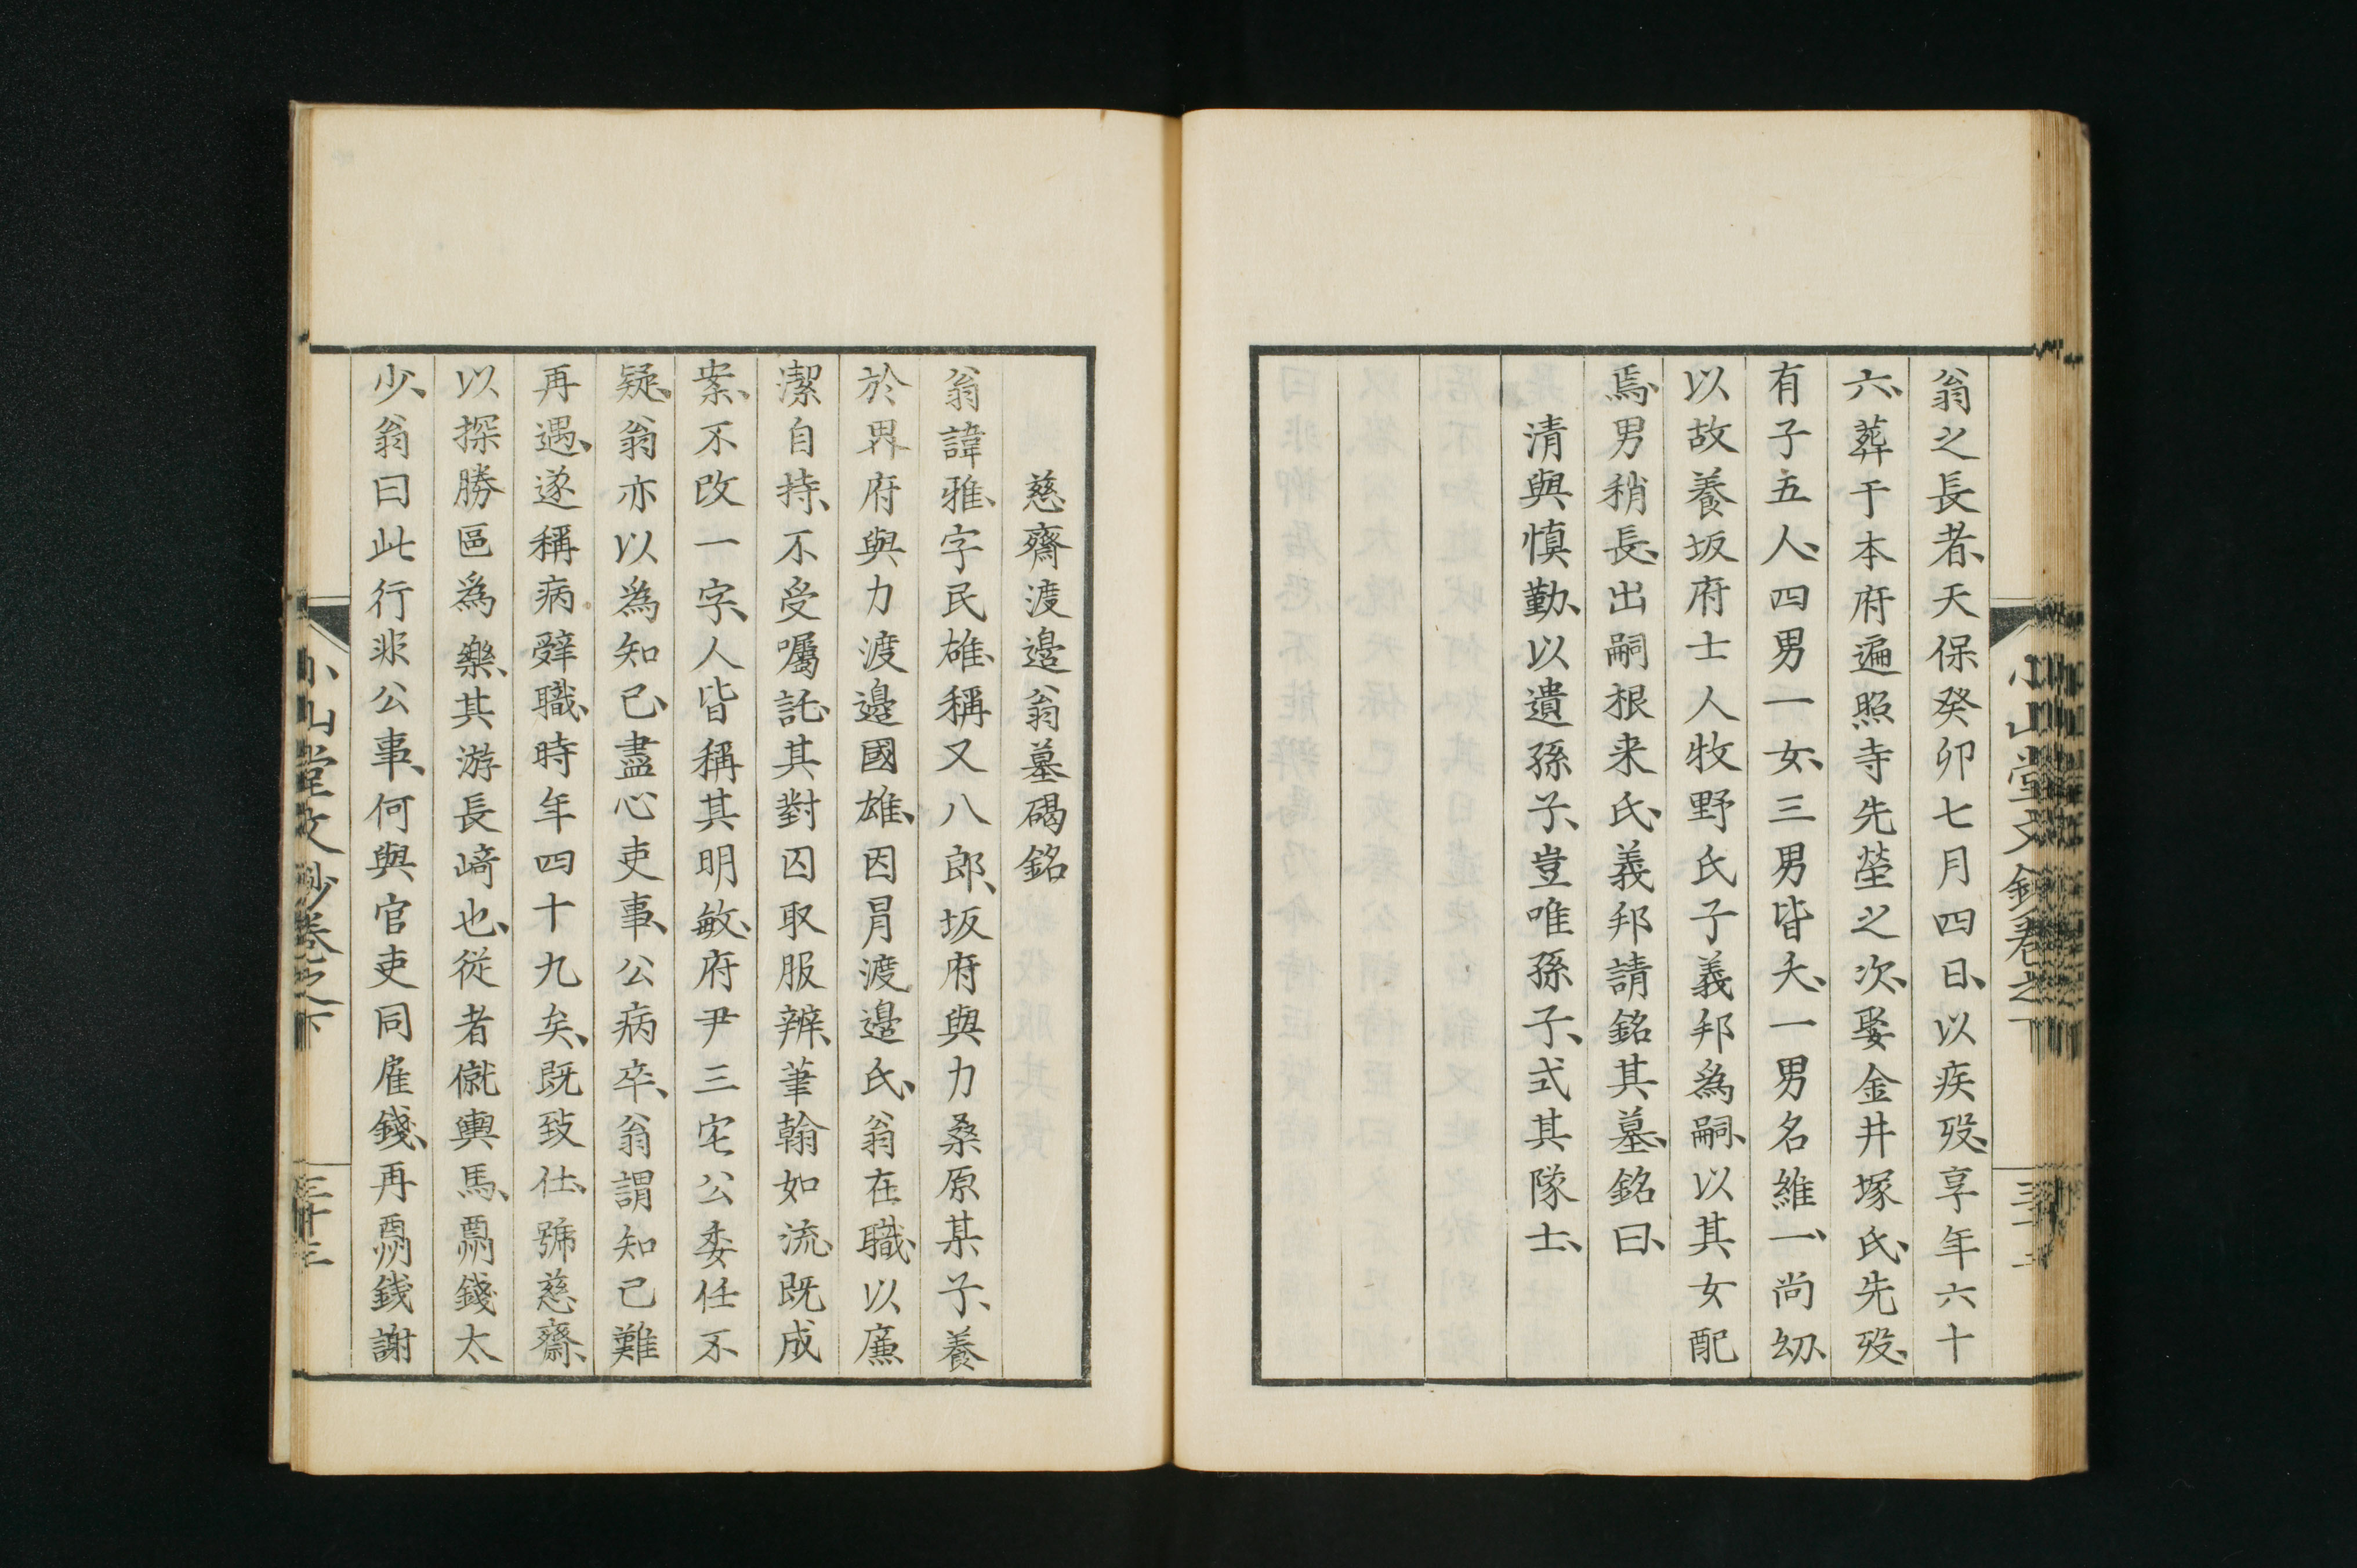 翁之長者、天保癸卯七月四日、以疾歿、享年六十
六、葬于本府遍照寺先塋之次、娶金井塚氏、先歿、
有子五人、四男一女、三男皆夭、一男名維一、尚幼、
以故養坂府士人牧野氏子義邦為嗣、以其女配
焉、男稍長、出嗣根来氏、義邦請銘其墓、銘曰、
清與慎勤、以遺孫子、豈唯孫子、式其隊士、
慈齋渡邉翁墓碣銘
翁諱雅、字民雄、稱又八郎、坂府與力桑原某子、養
於界府與力渡邉國雄、因冐渡邉氏、翁在職、以廉
潔自持、不受囑託、其對囚取服辨、筆翰如流、既成
案、不改一字、人皆稱其明敏、府尹三宅公委任不
疑、翁亦以為知己、盡心吏事、公病卒、翁謂知己難
再遇、遂稱病辭職、時年四十九矣、既致仕、號慈齋、
以探勝區為樂、其游長崎也、従者僦輿馬、酬錢太
少、翁曰此行非公事、何與官吏同雇錢、再酬銭謝
小山堂文鈔卷之下
三十三